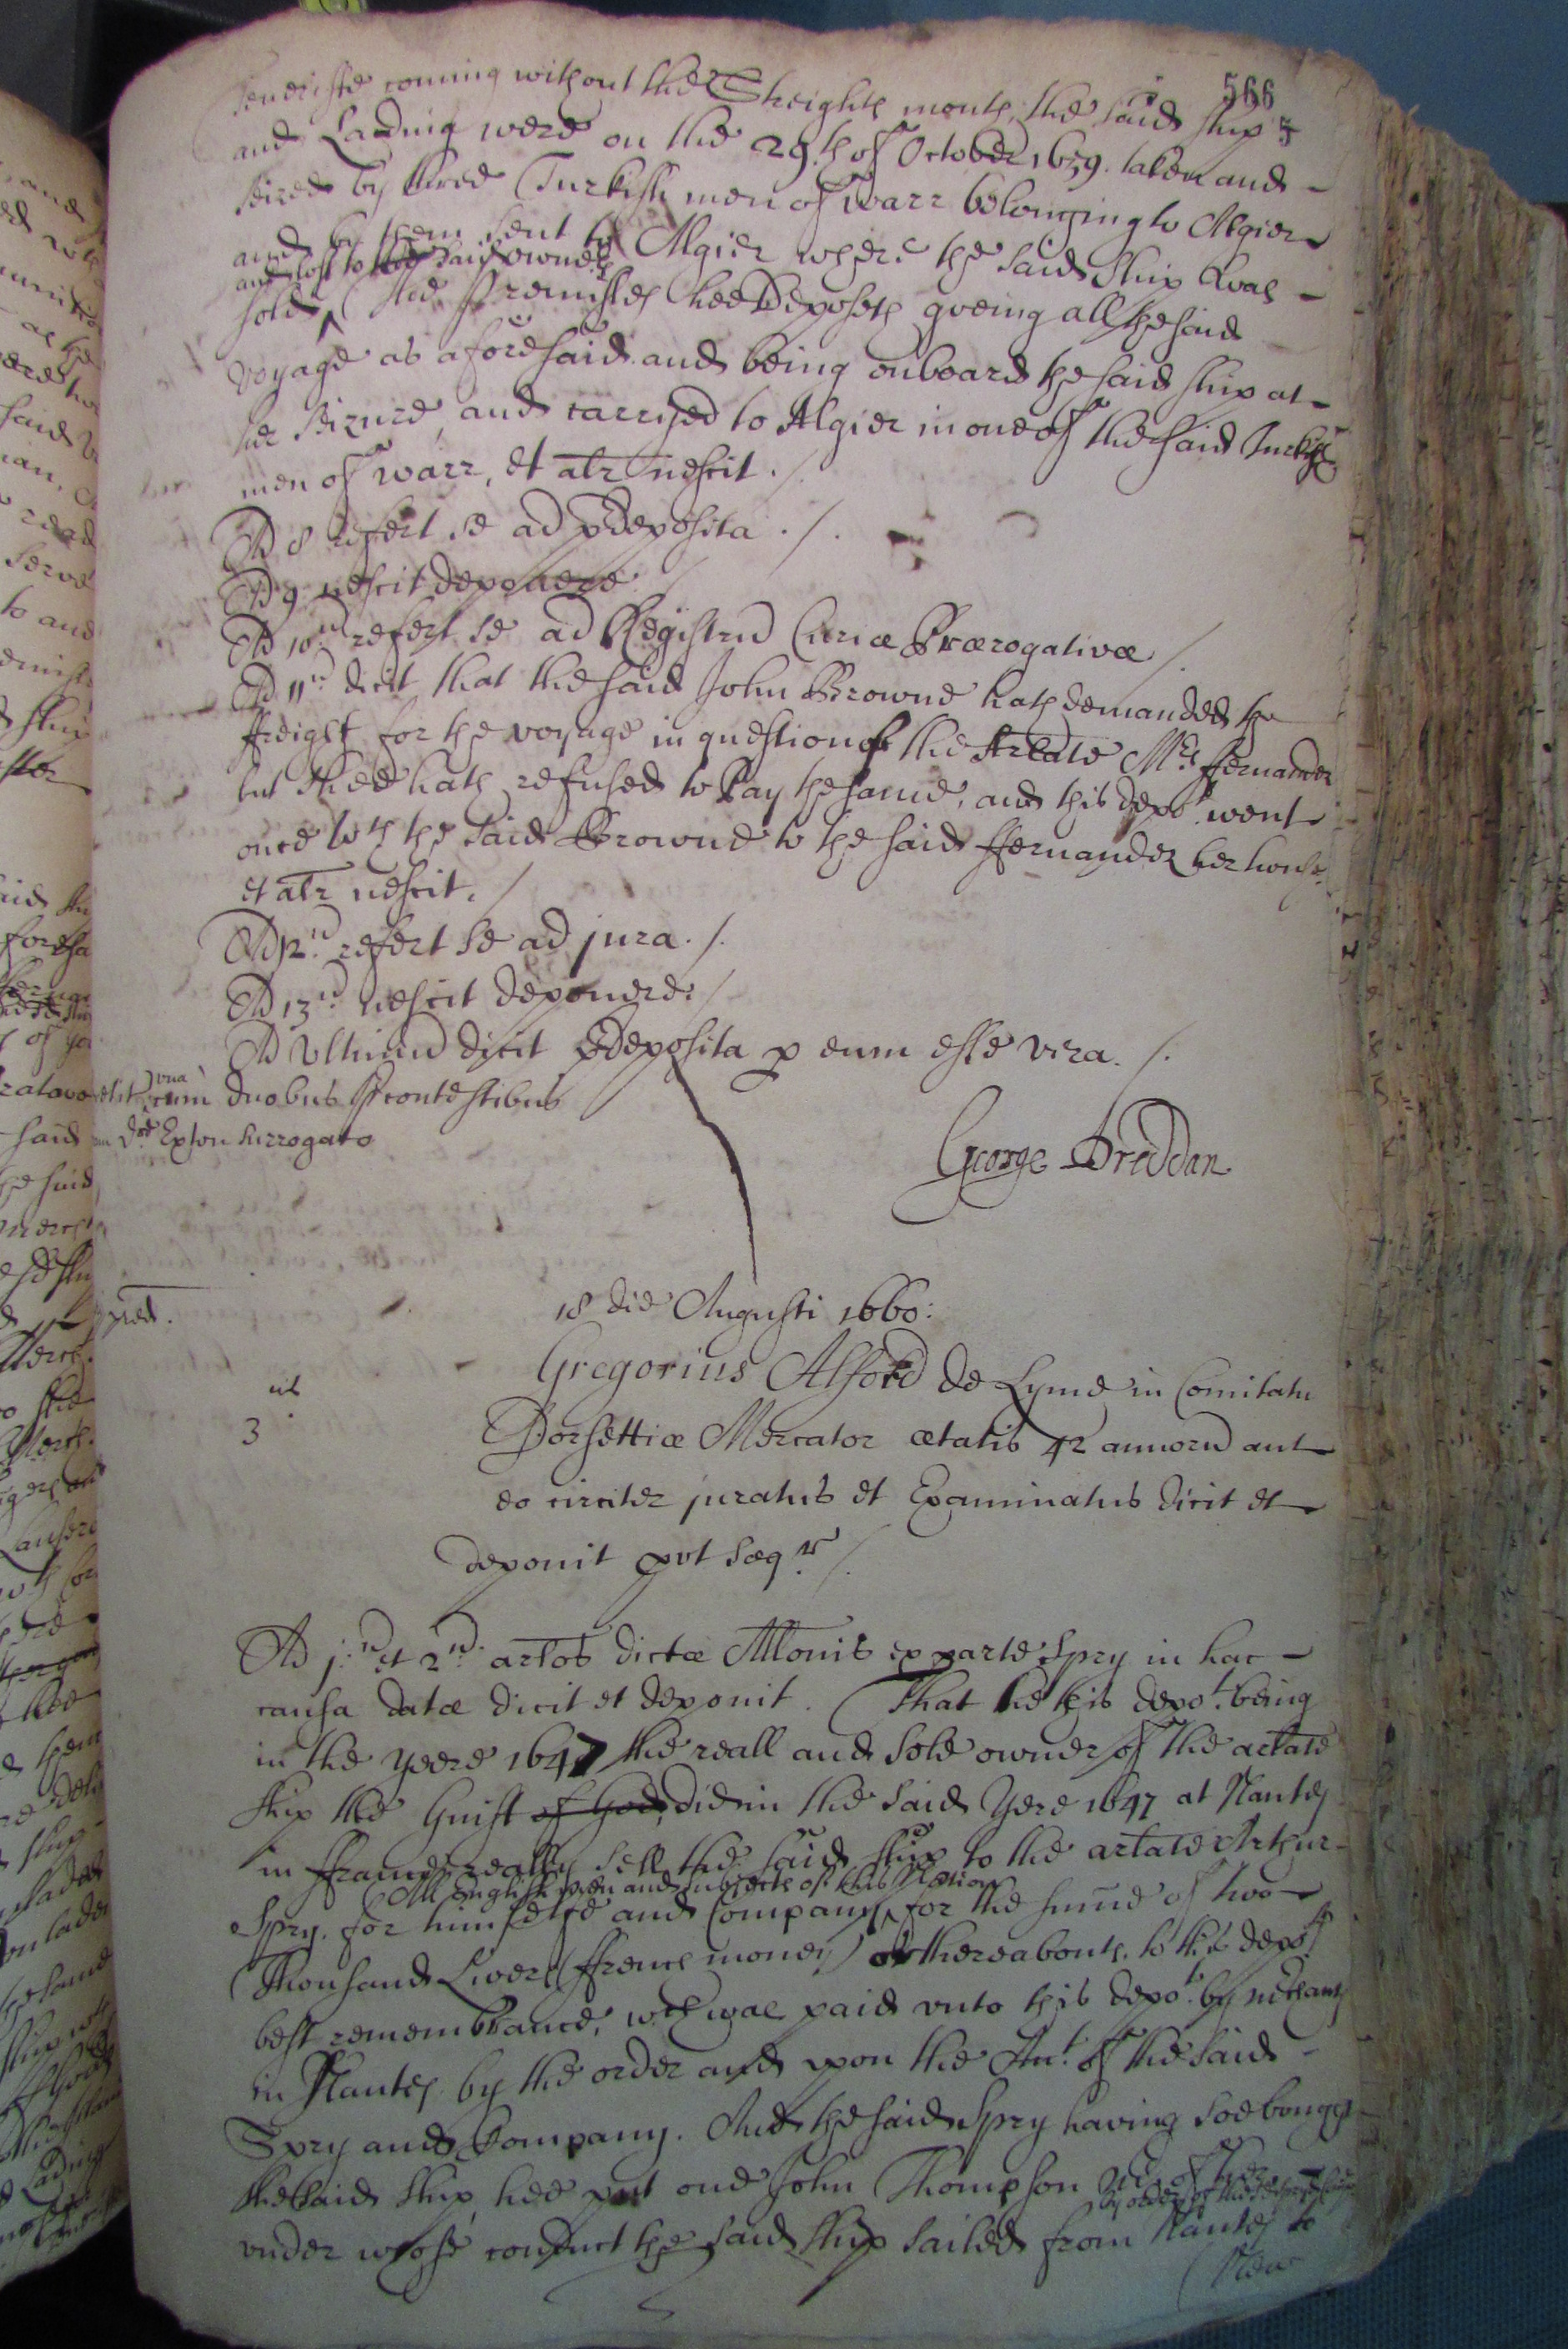 566
Teneriffe coming without the Streights mouth, the said ship
and Lading were on the 29.th of October 1659. taken and
seized by three Turkish men of warr belonging to Algier
and by them sent to Algier where the said ship was
and lost to the said owners
sold, The premisses hee deposeth goeing all the said
voyage as aforesaid. and being onboard the said ship at
her seizure, and carryed to Algier in one of the said Turkish
men of warr, et alr nescit ./
Ad 8 refert se ad pdeposita ./.
Ad 9 nescit deponere /
Ad 10.um refert se ad Registrũ Curiæ Prærogativæ /.
Ad 11.um dicit that the said John Browne hath demanded the
freight for the voyage in question of the arlate Mrs ffernandez
but shee hath refused to Pay the same, and this depot. went
once wth the said Browne to the said ffernandez her house,
et alr nescit. /
Ad 12.um refert se ad jura ./.
Ad 13.um nescit deponere. /
Ad Ultimũ dicit pdeposita p eum esse vera. /.
vna
cum duobus Prcontestibus
Exton Surrogato
George Dreddan
18 die Augusti 1660:
Gregorius Alford de Lyme in Comitatu
3us
Dorsettiæ Mercator ætatis 42 annorũ aut
eo circiter juratus et Examinatus dicit et
deponit put sæqr /.
Ad j.um et 2.um arlos dictæ Allonis ex parte Spry in hac
causa datæ dicit et deponit. That he this depot. being
in the yeere 1647 the reall and sole owner of the arlate
ship the Guift of God, did in the said yere 1647 at Nantes
in ffrance really sell the said ship to the arlate Arthur
All Englishmen and subjects of this Nation
Spry. for himselfe and Company, for the summe of two
Thousand Livers (ffrench money) or thereabouts, to this depots
best remembrance, wch was paid vnto this depot. by mchants
in Nantes by the order and vpon the Act. of the said
Spry and Company. And the said Spry having soe bought
the said ship, hee put one John Thompson Mr of her
by order of the
vnder whose conduct the said ship sailed from Nantes to
New